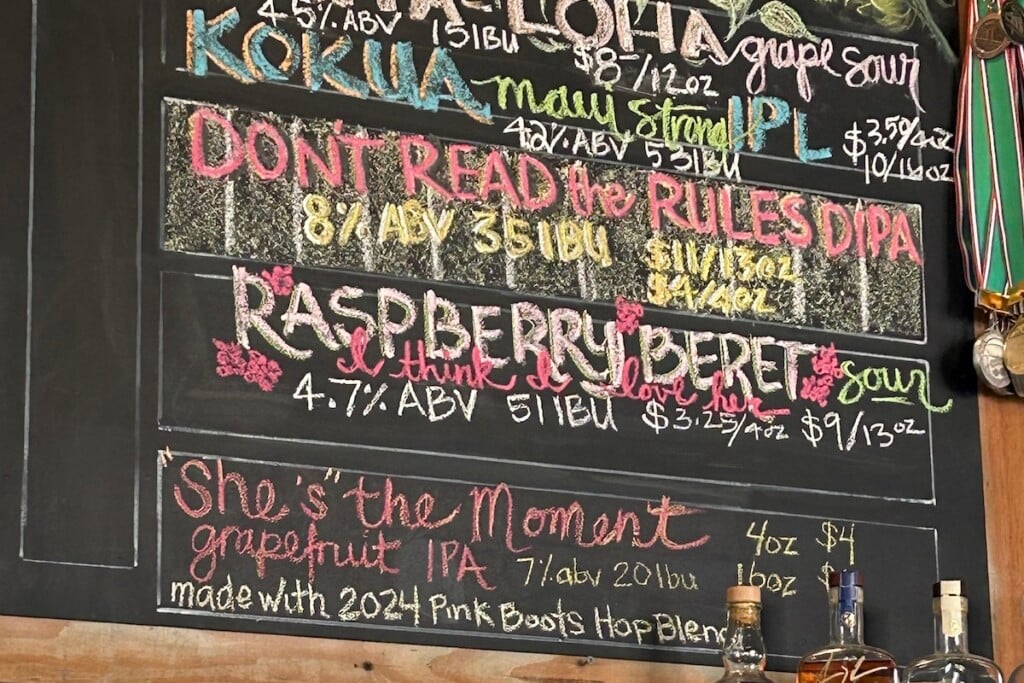 ALOHA grape sour
4.5% ABV 15 IBU $8-/12oz
KOKUA Maui Strong IPL
42% ABV 53 IBU $3.50/4oz
10/16oz
DON'T READ the RULES DIPA
8% ABV 35 IBU $11/13oz
$4/4oz
RASPBERRY BERET sour
I think I love her
4.7% ABV 51 IBU $3.25/4oz $9/13oz
"She's" the Moment
grapefruit IPA 7% abv 20 Ibu
4oz $4
16oz $
made with 2024 Pink Boots Hop Blend